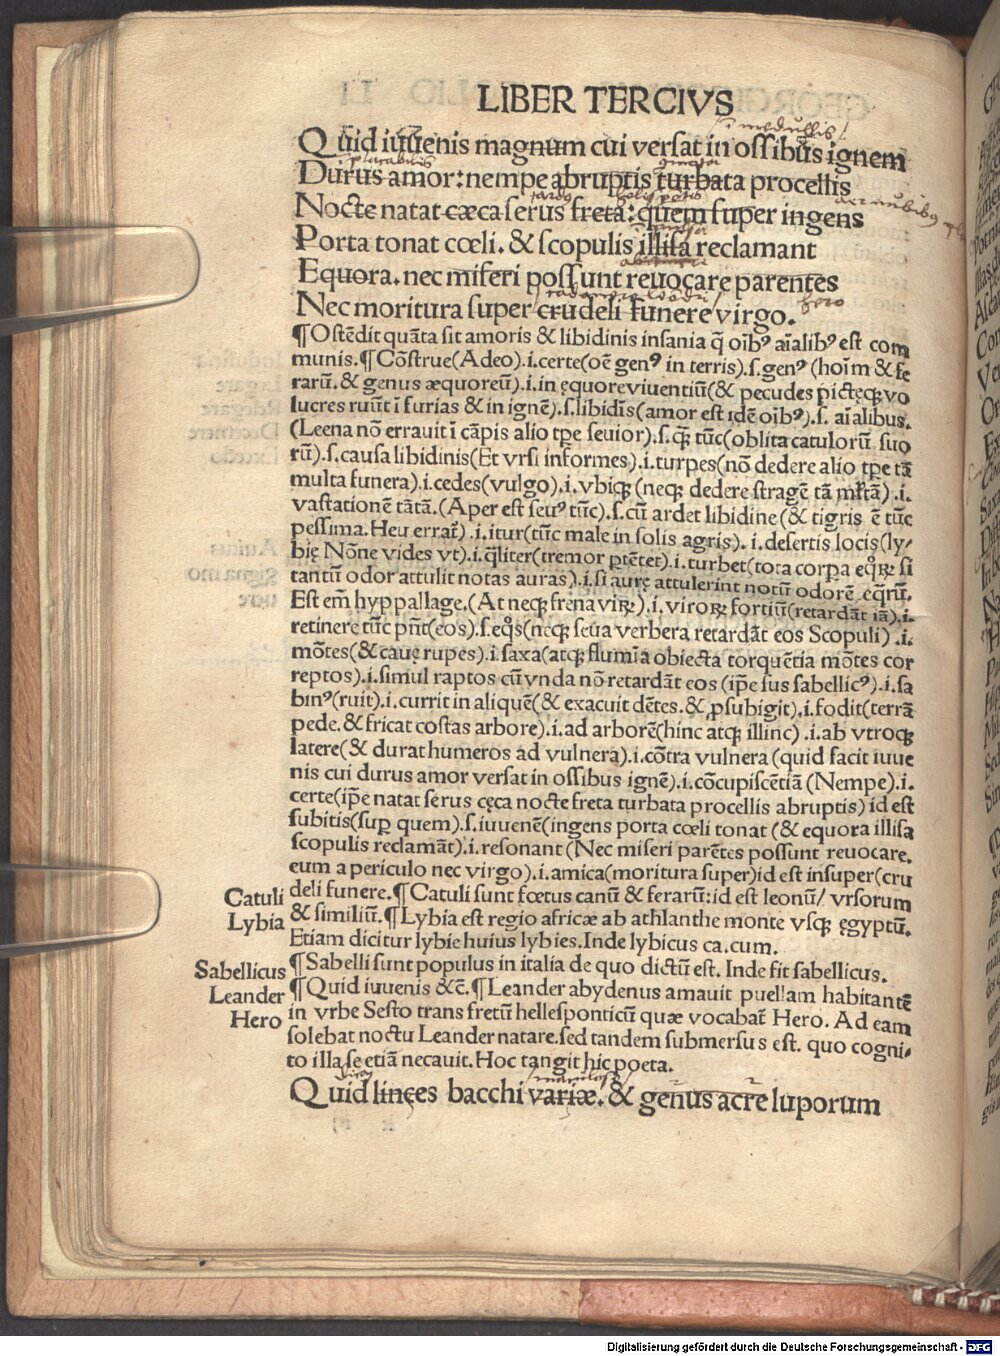 LIBER TERCIVS
i medullis
Quid iuuenis magnum cui versat in ossibus ignem
Durus amor: nempe abruptis turbata procellis
Nocte natat cæca serus freta: quem super ingens
Porta tonat cœli. & scopulis illisa reclamant
Equora. nec miseri possunt reuocare parentes
Nec moritura super crudeli funere virgo.
hero
¶Ostēdit quāta sit amoris & libidinis insania q̄ oībꝰ aīalibꝰ est com
munis.¶Cōstrue(Adeo).i.certe(oē genꝰ in terris).s.genꝰ (hoīm & fe
rarū. & genus æquoreū).i.in ęquore viuentiū(& pecudes pictęqꝫ vo
lucres ruūt ī furias & in ignē).s.libidīs(amor est idē oībꝰ).s. aīalibus.
(Leena nō errauit ī cāpis alio tꝑe seuior).s.qꝫ tūc(oblita catulorū suo
rū).s.causa libidinis(Et vrsi informes).i.turpes(nō dedere alio tꝑe tā
multa funera).i.cedes(vulgo).i.vbiqꝫ (neqꝫ dedere stragē tā ml̄tā) .i.
vastationē tātā.(Aper est seuꝰ tūc).s.cū ardet libidine(& tigris ē tūc
pessima.Heu errat̄).i.itur(tūc male in solis agris). i.desertis locis(ly/
bię Nōne vides vt).i.q̄liter(tremor ꝑtētet).i.turbet(tota corꝑa eqͦꝝ si
tantū odor attulit notas auras).i.si aurę attulerint notū odorē eq̄rū.
Est em̄ hyppallage.(At neqꝫ frena virꝝ).i.viroꝝ fortiū(retardāt iā).i.
retinere tūc pn̄t(eos).s.eqͦs(neqꝫ seua verbera retardāt eos Scopuli) .i.
mōtes(& cauę rupes).i.saxa(atqꝫ flumīa obiecta torquētia mōtes cor
reptos).i.simul raptos cū vnda nō retardāt eos (ip̄e sus sabellicꝰ).i.sa
binꝰ(ruit).i.currit in aliquē(& exacuit dētes.& ꝓsubigit).i.fodit(terrā
pede.& fricat costas arbore).i.ad arborē(hinc atqꝫ illinc) .i.ab vtroqꝫ
latere(& durat humeros ad vulnera).i.cōtra vulnera (quid facit iuue
nis cui durus amor versat in ossibus ignē).i.cōcupiscētiā (Nempe).i.
certe(ip̄e natat serus cęca nocte freta turbata procellis abruptis) id est
subitis(suꝑ quem).s.iuuenē(ingens porta cœli tonat (& equora illisa
scopulis reclamāt).i.resonant (Nec miseri parētes possunt reuocare.
eum a periculo nec virgo).i.amica(moritura super)id est insuper(cru
deli funere.¶Catuli sunt fœtus canū & ferarū:id est leonū/ vrsorum
Catuli
& similiū.¶Lybia est regio africæ ab athlanthe monte vsqꝫ ęgyptū.
Lybia
Etiam dicitur lybie huius lybies.Inde lybicus ca.cum.
¶Sabelli sunt populus in italia de quo dictū est. Inde fit sabellicus.
Sabellicus
¶Quid iuuenis &c̄.¶Leander abydenus amauit puellam habitantē
Leander
in vrbe Sesto trans fretū hellesponticū quæ vocabat̄ Hero. Ad eam
Hero
solebat noctu Leander natare.sed tandem submersus est. quo cogni/
to illa se etiā necauit.Hoc tangit hic poeta.
Quid linçes bacchi variæ. & genus acre luporum
Digitalisierung gefördert durch die Deutsche Forschungsgemeinschaft - DFG